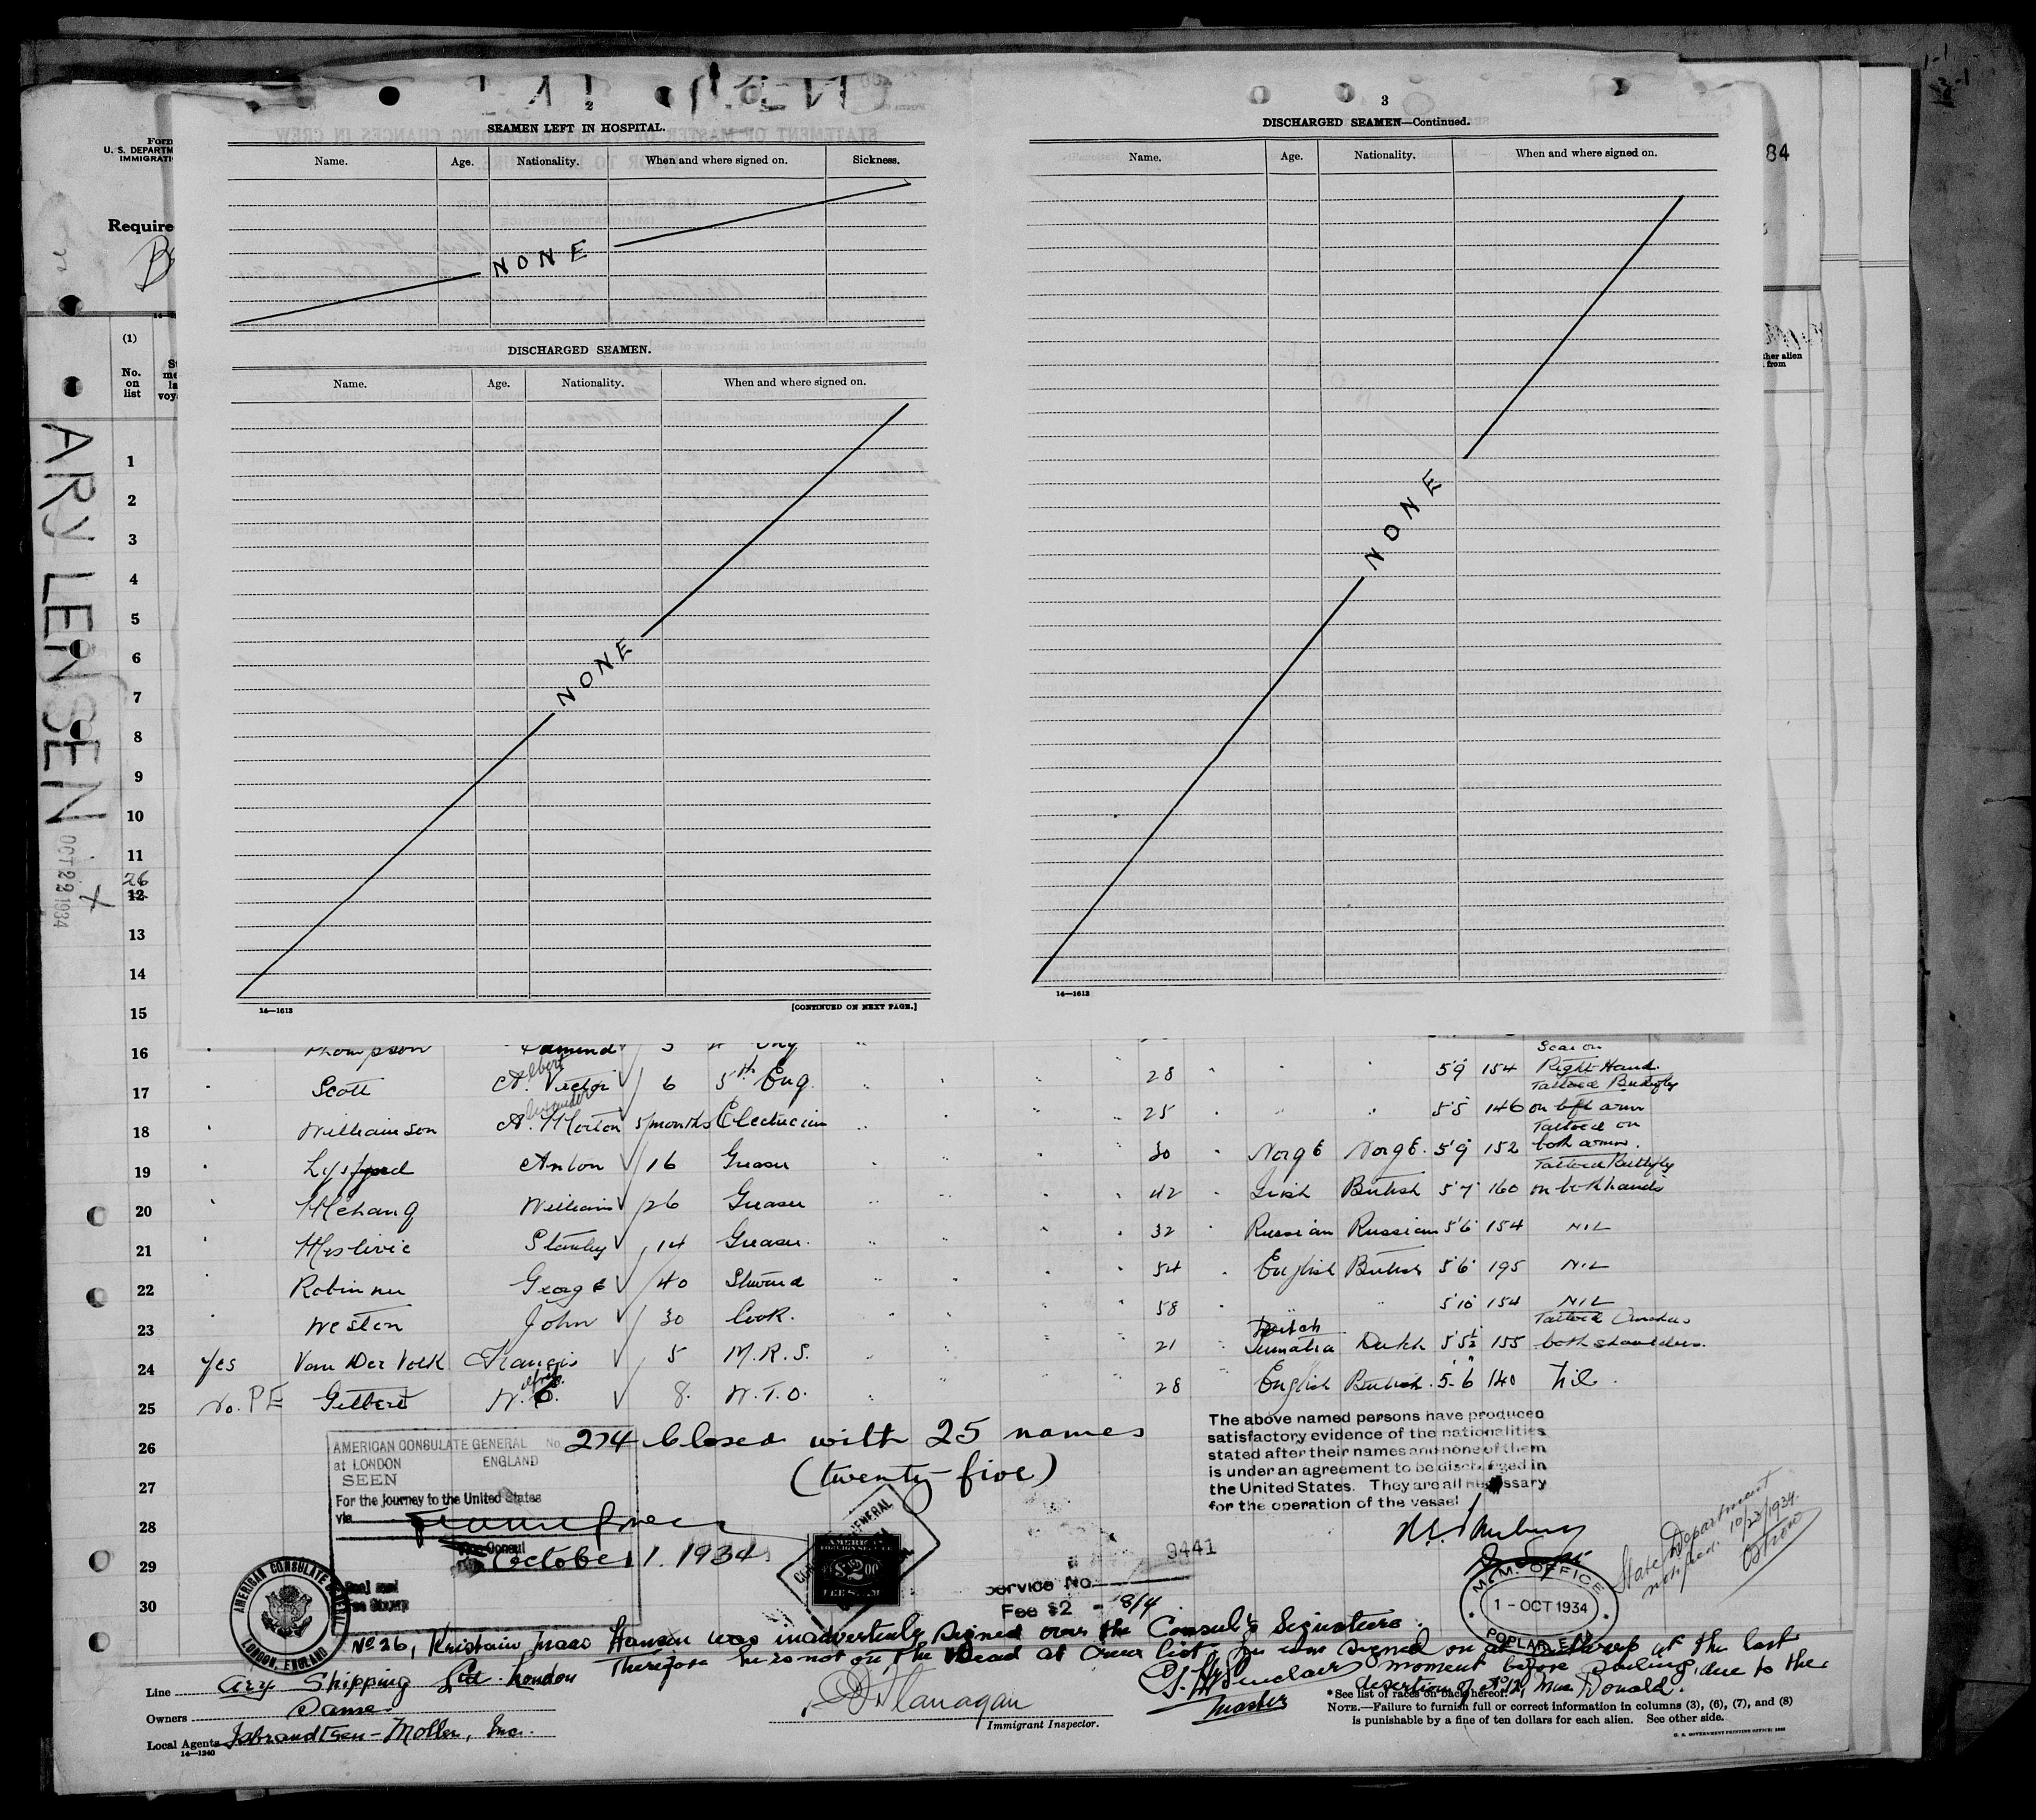 2
SEAMEN LEFT IN HOSPITAL.
Name. Age. Nationality. When and where signed on. Sickness.
NONE
DISCHARGED SEAMEN.
Name. Age. Nationality. When and where signed on.
NONE
14—1613 [CONTINUED ON NEXT PAGE.]
3
DISCHARGED SEAMEN—Continued.
Name. Age. Nationality. When and where signed on.
NONE
14—1613
84
Form
U. S. DEPARTM
IMMIGRATI
Require
(1)
No.
on
list
ther alien
from
ARY LENSEN
OCT 22 1934
1
2
3
4
5
6
7
8
9
10
11
26
12
13
14
15
16 Thompson Edmund 5 Eng
17 Scott A. Albert Victor 6 5th Eng. 28 5'9 154 Scar on Right Hand.
18 Williamson A. Morton 5/months Electrician 25 5'5 146 Tattoed Butterfly on left arm
19 Anton 16 Greaser 30 Norge Norge. 5'9 152 Tattoed on both arms.
20 William 26 Greaser 42 Irish British 5'7 160 Tattoed Butterfly on both hands
21 Stanley 14 Greaser. 32 Russian Russian 5'6 154 NIL
22 George 40 Steward 54 English British 5'6 195 NIL
23 Weston John 30 Cook. 58 5'10 154 NIL
24 Yes Van Der Volk Francis 5 M.R.S. 21 Dutch Sumatra Dutch 5'5½ 155 Tattoed Anchors both shoulders.
25 No. PE Gilbert W. 8. W.T.O. 28 English British. 5-6 140 nil.
26
27
28
29
30
AMERICAN CONSULATE GENERAL
at LONDON ENGLAND
SEEN
No. 274 Closed with 25 names
(twenty-five)
For the journey to the United States
via
Vice Consul
October 1. 1934
AMERICAN CONSULATE GENERAL
LONDON, ENGLAND
AMERICAN
$2.00
FEE STAMP
9441
Service No.
Fee $2 - 8/4
The above named persons have produced
satisfactory evidence of the nationalities
stated after their names and none of them
is under an agreement to be discharged in
the United States. They are all necessary
for the operation of the vessel
M.M. OFFICE
1 - OCT 1934
POPLAR, E.14
State Department
notified. 10/23/1934.
No 26, Kristain Isaac Hansen was inadvertently signed over the Consul's Signature.
Therefore he is not on the Head at Crew list, he was signed on at Antwerp at the last
moment before sailing, due to the
desertion of No 12, Mac Donald.
Master
Line Ary Shipping Ltd. London
Owners Same.
Local Agents Isbrandtsen-Moller, Inc.
14—1240
Flanagan
Immigrant Inspector.
* See list of races on back hereof.
NOTE.—Failure to furnish full or correct information in columns (3), (6), (7), and (8)
is punishable by a fine of ten dollars for each alien. See other side.